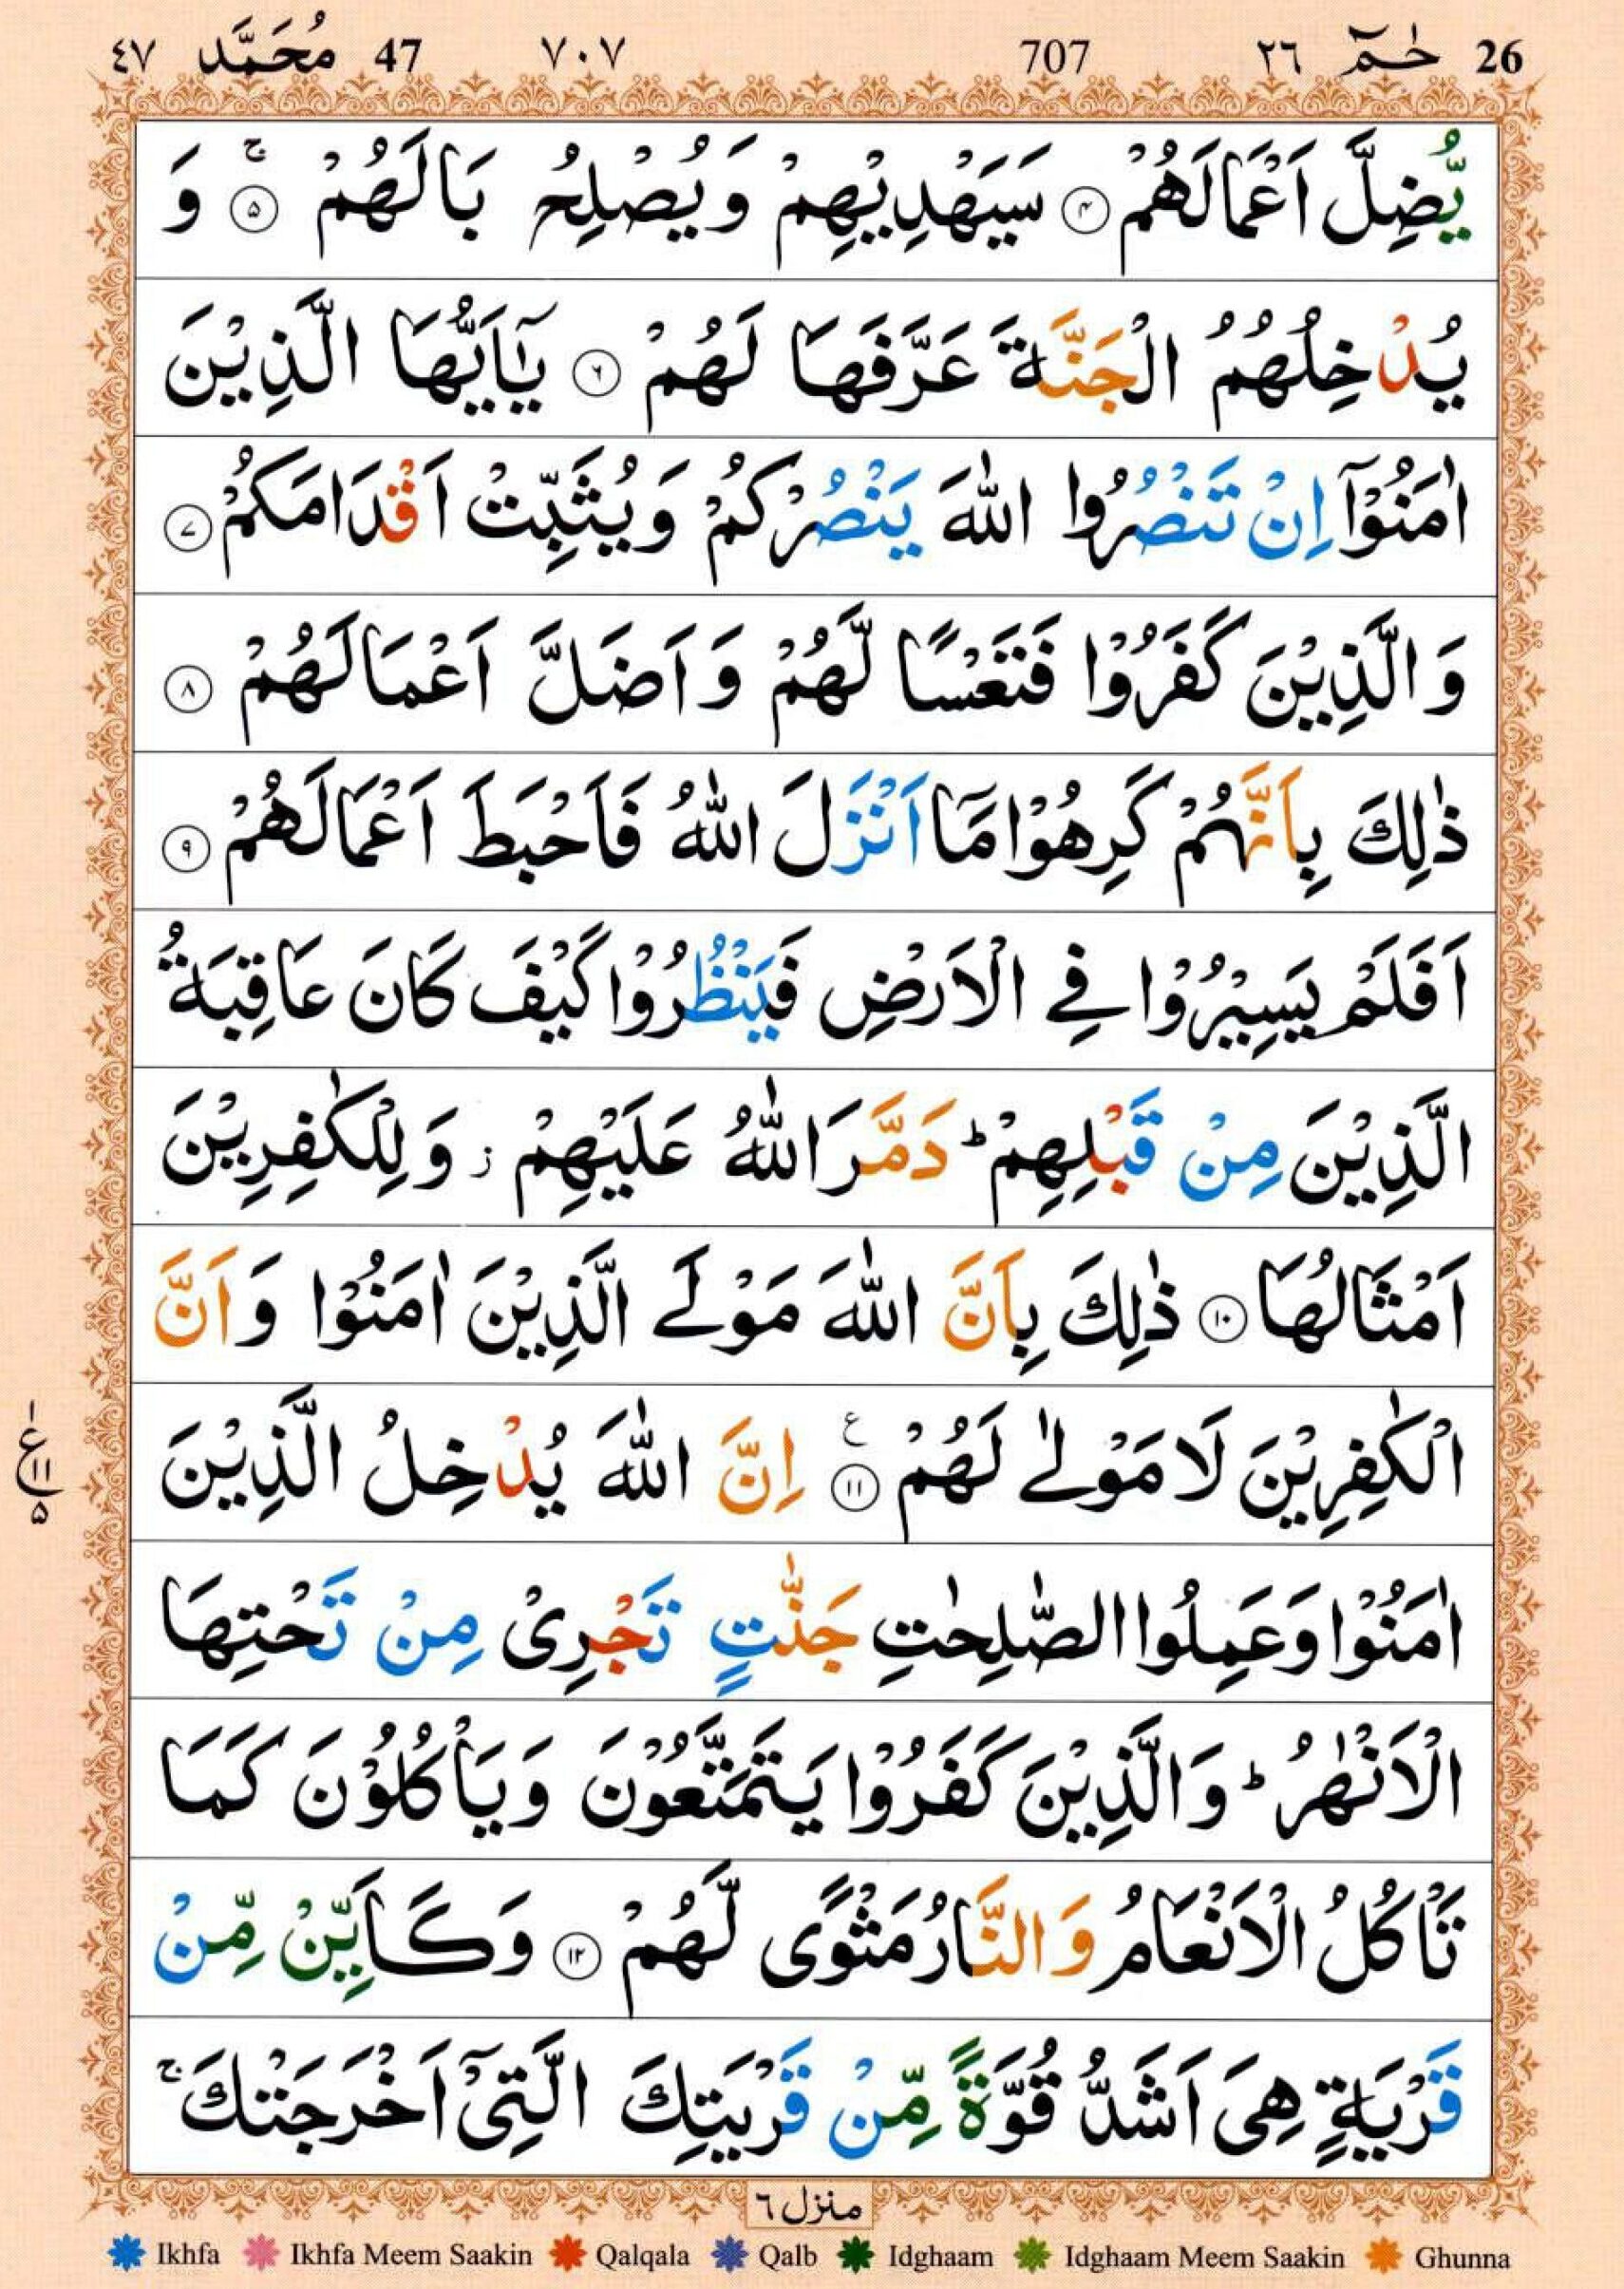 26 حٰمٓ ٢٦ 707 ٧٠٧ 47 مُحَمَّد ٤٧
يُّضِلَّ اَعْمَالَهُمْ ۴ سَيَهْدِيْهِمْ وَيُصْلِحُ بَالَهُمْ ۵ ۚ وَ
يُدْخِلُهُمُ الْجَنَّةَ عَرَّفَهَا لَهُمْ ۶ يٰٓاَيُّهَا الَّذِيْنَ
اٰمَنُوْٓا اِنْ تَنْصُرُوا اللّٰهَ يَنْصُرْكُمْ وَيُثَبِّتْ اَقْدَامَكُمْ ۷
وَالَّذِيْنَ كَفَرُوْا فَتَعْسًا لَّهُمْ وَاَضَلَّ اَعْمَالَهُمْ ۸
ذٰلِكَ بِاَنَّهُمْ كَرِهُوْا مَآ اَنْزَلَ اللّٰهُ فَاَحْبَطَ اَعْمَالَهُمْ ۹
اَفَلَمْ يَسِيْرُوْا فِى الْاَرْضِ فَيَنْظُرُوْا كَيْفَ كَانَ عَاقِبَةُ
الَّذِيْنَ مِنْ قَبْلِهِمْ ؕ دَمَّرَ اللّٰهُ عَلَيْهِمْ ز وَلِلْكٰفِرِيْنَ
اَمْثَالُهَا ۱۰ ذٰلِكَ بِاَنَّ اللّٰهَ مَوْلَى الَّذِيْنَ اٰمَنُوْا وَاَنَّ
الْكٰفِرِيْنَ لَا مَوْلٰى لَهُمْ ۱۱ ع اِنَّ اللّٰهَ يُدْخِلُ الَّذِيْنَ
۱ ع ۱۱ ۵
اٰمَنُوْا وَعَمِلُوا الصّٰلِحٰتِ جَنّٰتٍ تَجْرِىْ مِنْ تَحْتِهَا
الْاَنْهٰرُ ؕ وَالَّذِيْنَ كَفَرُوْا يَتَمَتَّعُوْنَ وَيَاْكُلُوْنَ كَمَا
تَاْكُلُ الْاَنْعَامُ وَالنَّارُ مَثْوًى لَّهُمْ ۱۲ وَكَاَيِّنْ مِّنْ
قَرْيَةٍ هِىَ اَشَدُّ قُوَّةً مِّنْ قَرْيَتِكَ الَّتِىْٓ اَخْرَجَتْكَ ۚ
منزل ٦
Ikhfa Ikhfa Meem Saakin Qalqala Qalb Idghaam Idghaam Meem Saakin Ghunna